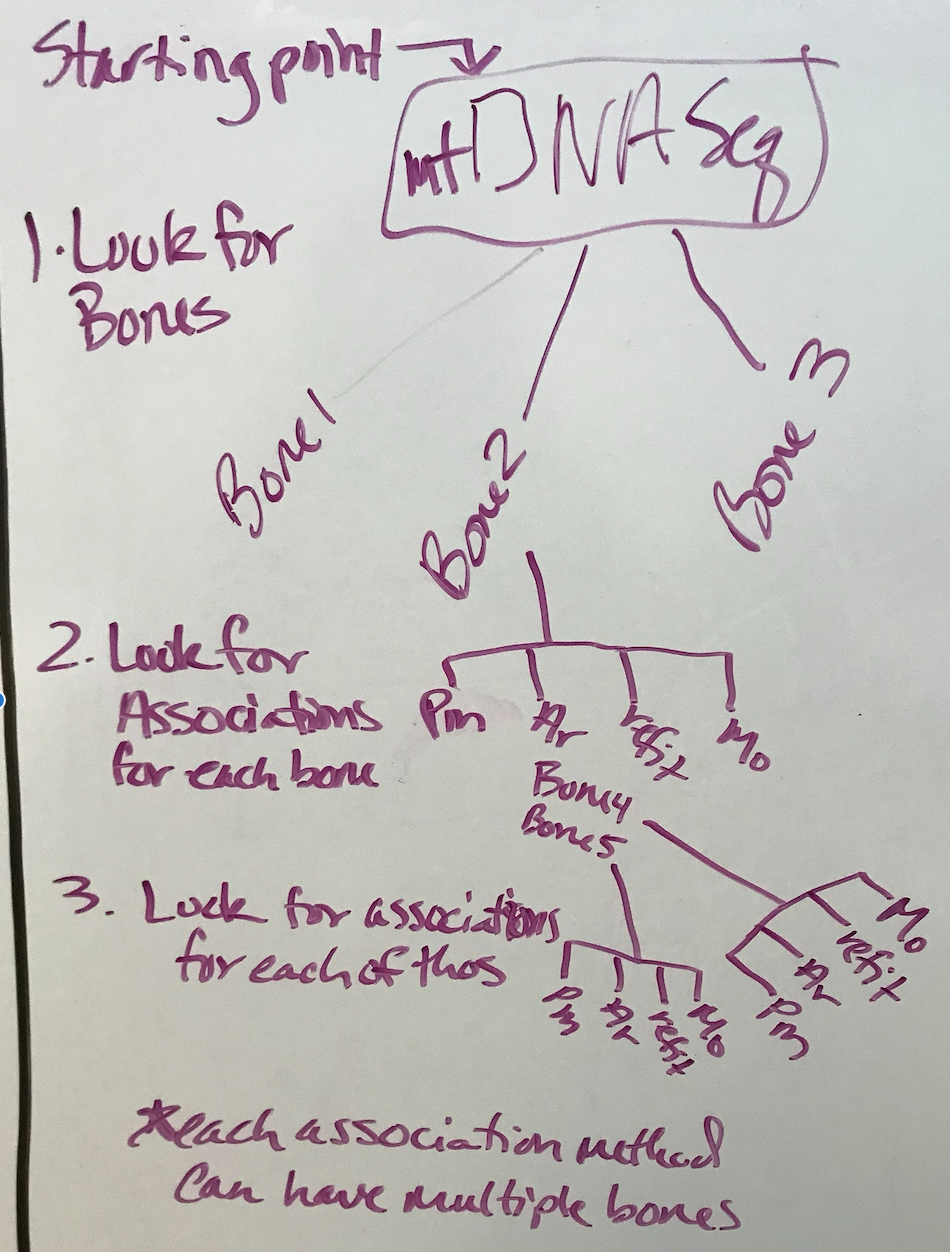 Starting point
mtDNA Seq
1. Look for
Bones
Bone 1
Bone 2
Bone 3
2. Look for
Associations
for each bone
Pm Ar refit Mo
Bone 4
Bone 5
3. Look for associations
for each of thos
Pm Ar refit Mo
Pm Ar refit Mo
*each association method
can have multiple bones